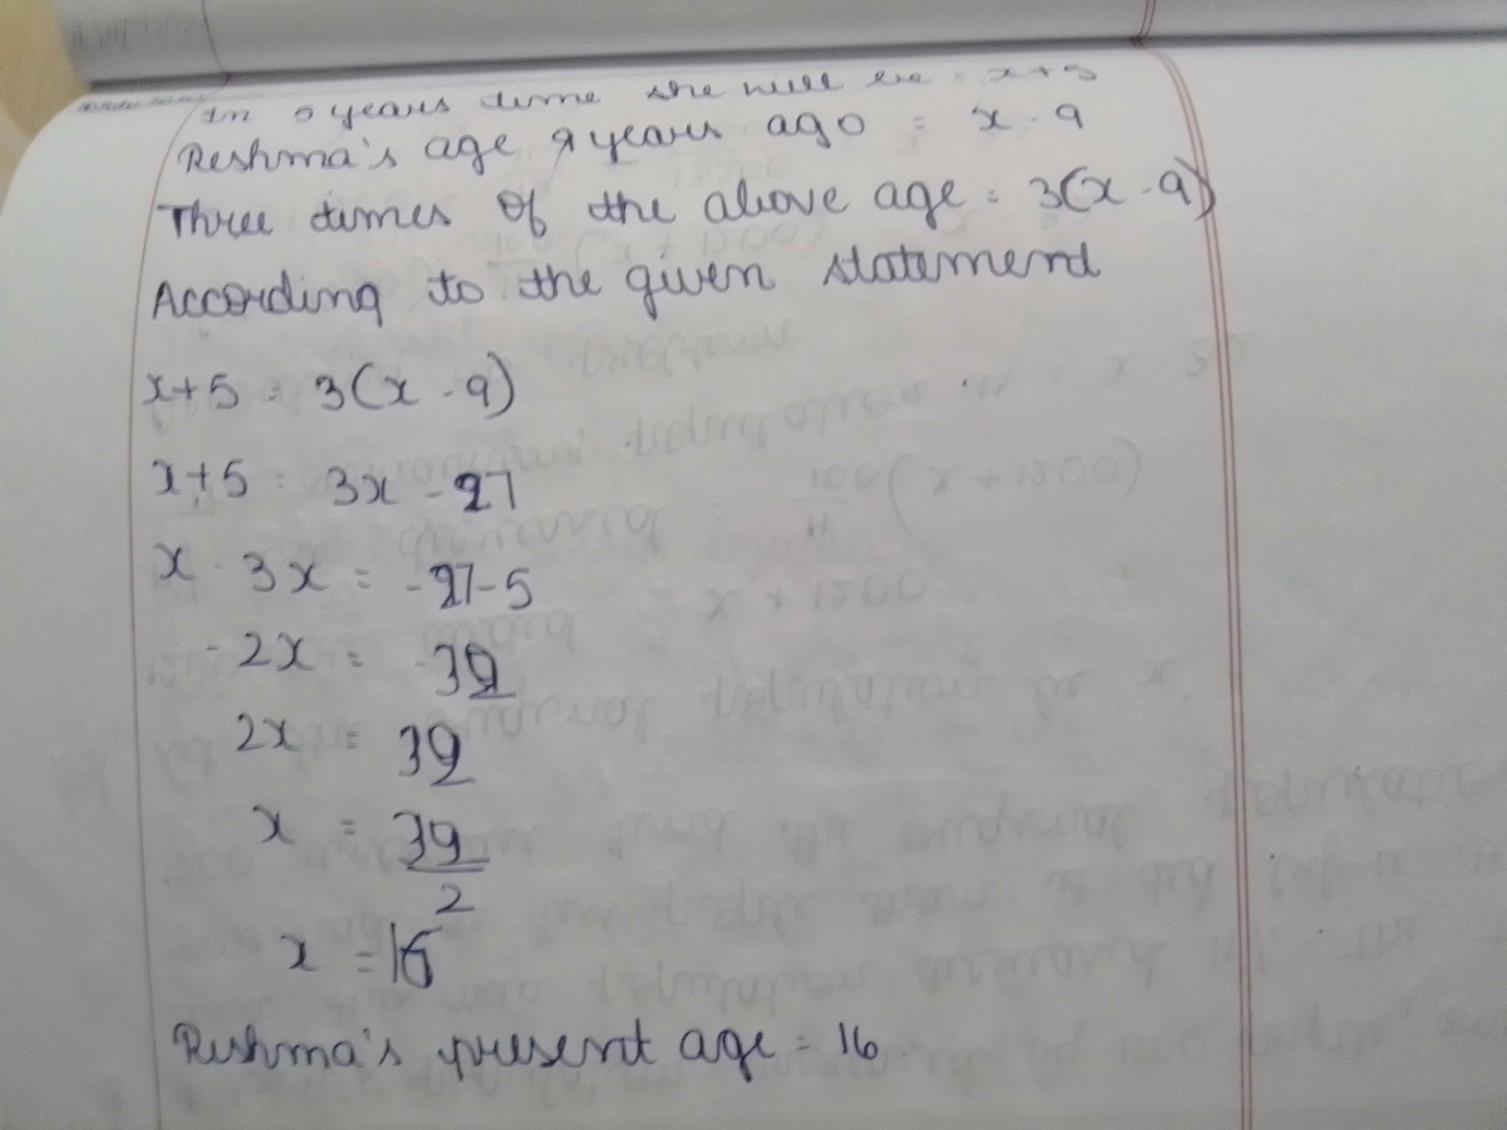 In 5 years time she will be = x+5
Reshma's age 9 years ago = x - 9
Three times of the above age = 3(x - 9)
According to the given statement
x+5 = 3(x - 9)
x+5 = 3x - 27
x - 3x = -27-5
-2x = -32
2x = 32
x = 32/2
x = 16
Reshma's present age = 16